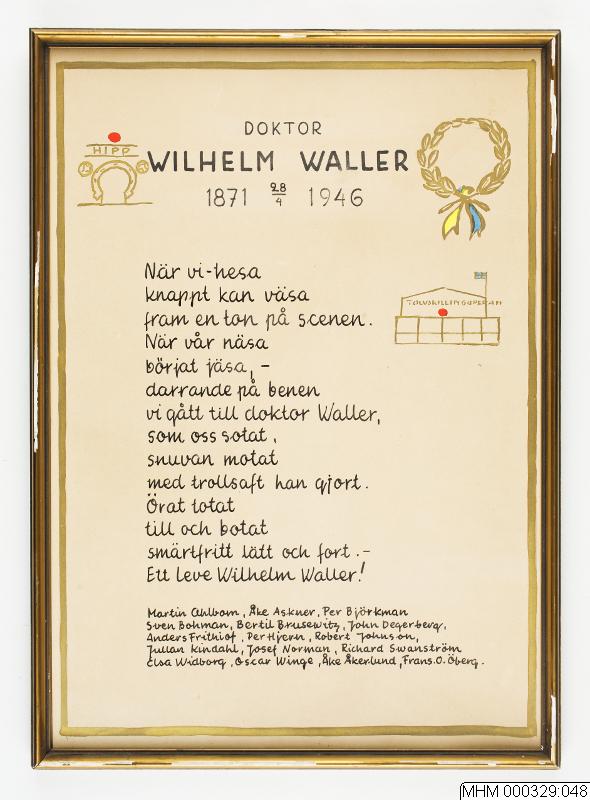 DOKTOR
HIPP
WILHELM WALLER
1871 28/4 1946
När vi-hesa
knappt kan väsa
fram en ton på scenen.
TOLVSKILLINGSOPERAN
När vår näsa
börjat jäsa, -
darrande på benen
vi gått till doktor Waller,
som oss sotat,
snuvan motat
med trollsaft han gjort.
Örat totat
till och botat
smärtfritt lätt och fort. -
Ett leve Wilhelm Waller!
Martin Ahlbom, Åke Askner, Per Björkman
Sven Bohman, Bertil Brusewitz, John Degerberg,
Anders Frithiof, Per Hjern, Robert Johnson,
Jullan Kindahl, Josef Norman, Richard Swanström
Elsa Widborg, Oscar Winge, Åke Åkerlund, Frans.O.Öberg.
MHM 000329:048